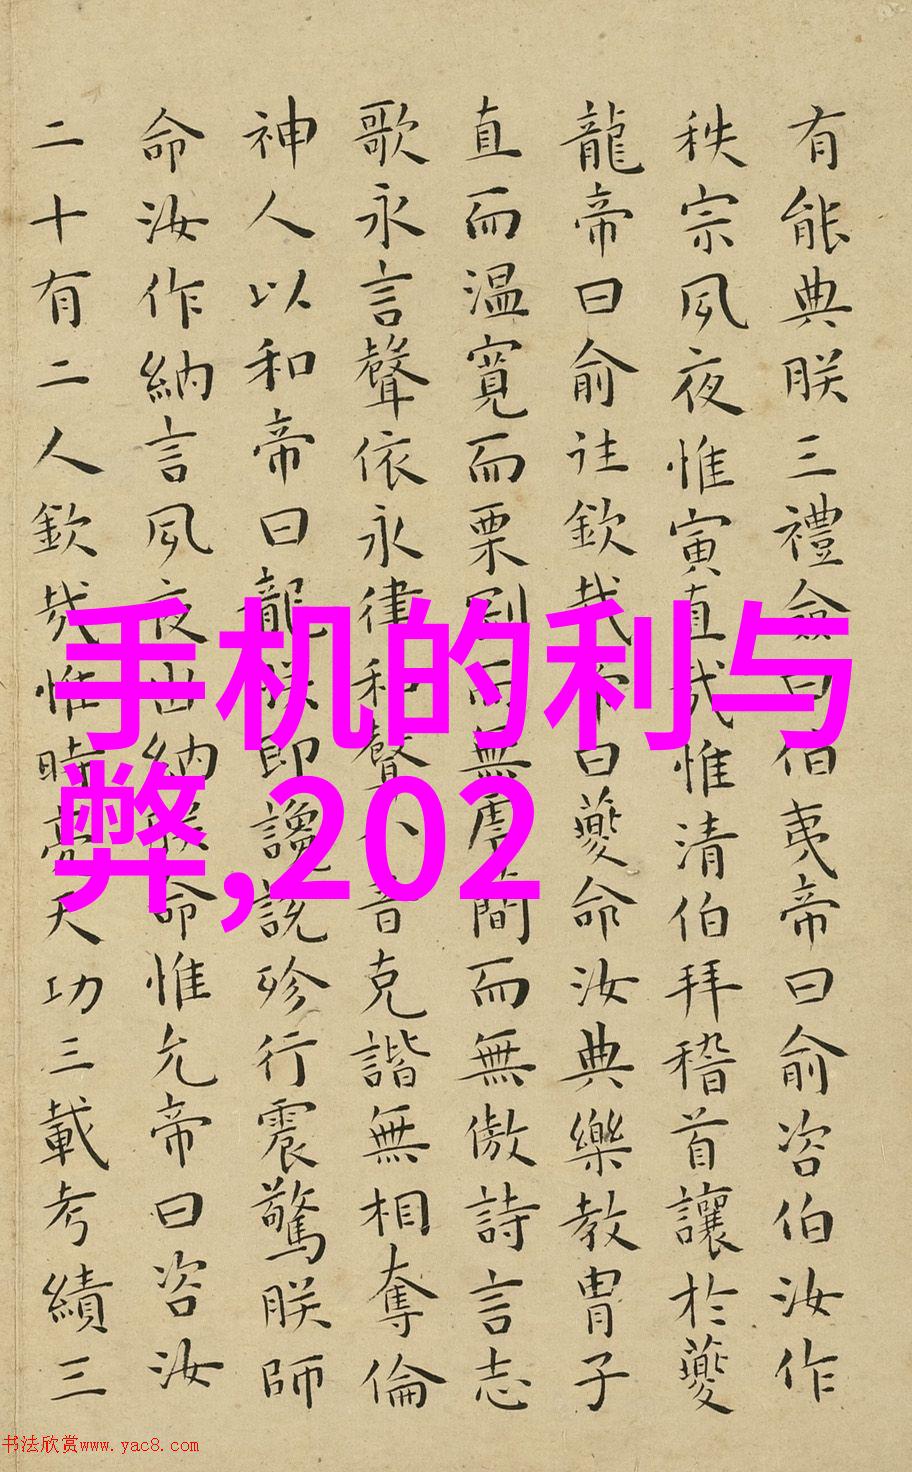 有能典朕三禮僉曰伯夷帝曰俞咨伯汝作
秩宗夙夜惟寅直哉惟清伯拜稽首讓於夔
龍帝曰俞往欽哉帝曰夔命汝典樂教胄子
直而温寬而栗剛而無虐簡而無傲詩言志
歌永言聲依永律和聲八音克諧無相奪倫
神人以和帝曰龍朕即讒説殄行震驚朕師
命汝作納言夙夜出納朕命惟允帝曰咨汝
二十有二人欽哉惟時亮天功三載考績三
手机的利与
弊,202
书法欣赏www.yac8.com